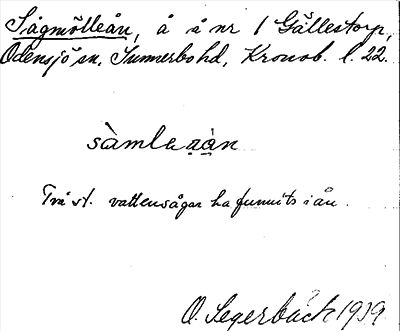 Sågmölleån, å å nr 1 Gällestorp,
Odensjö sn, Sunnerbo hd, Kronob. l. 22.
sàmleaàn
Två st. vattensågar ha funnits i ån.
O. Segerbäck 1939